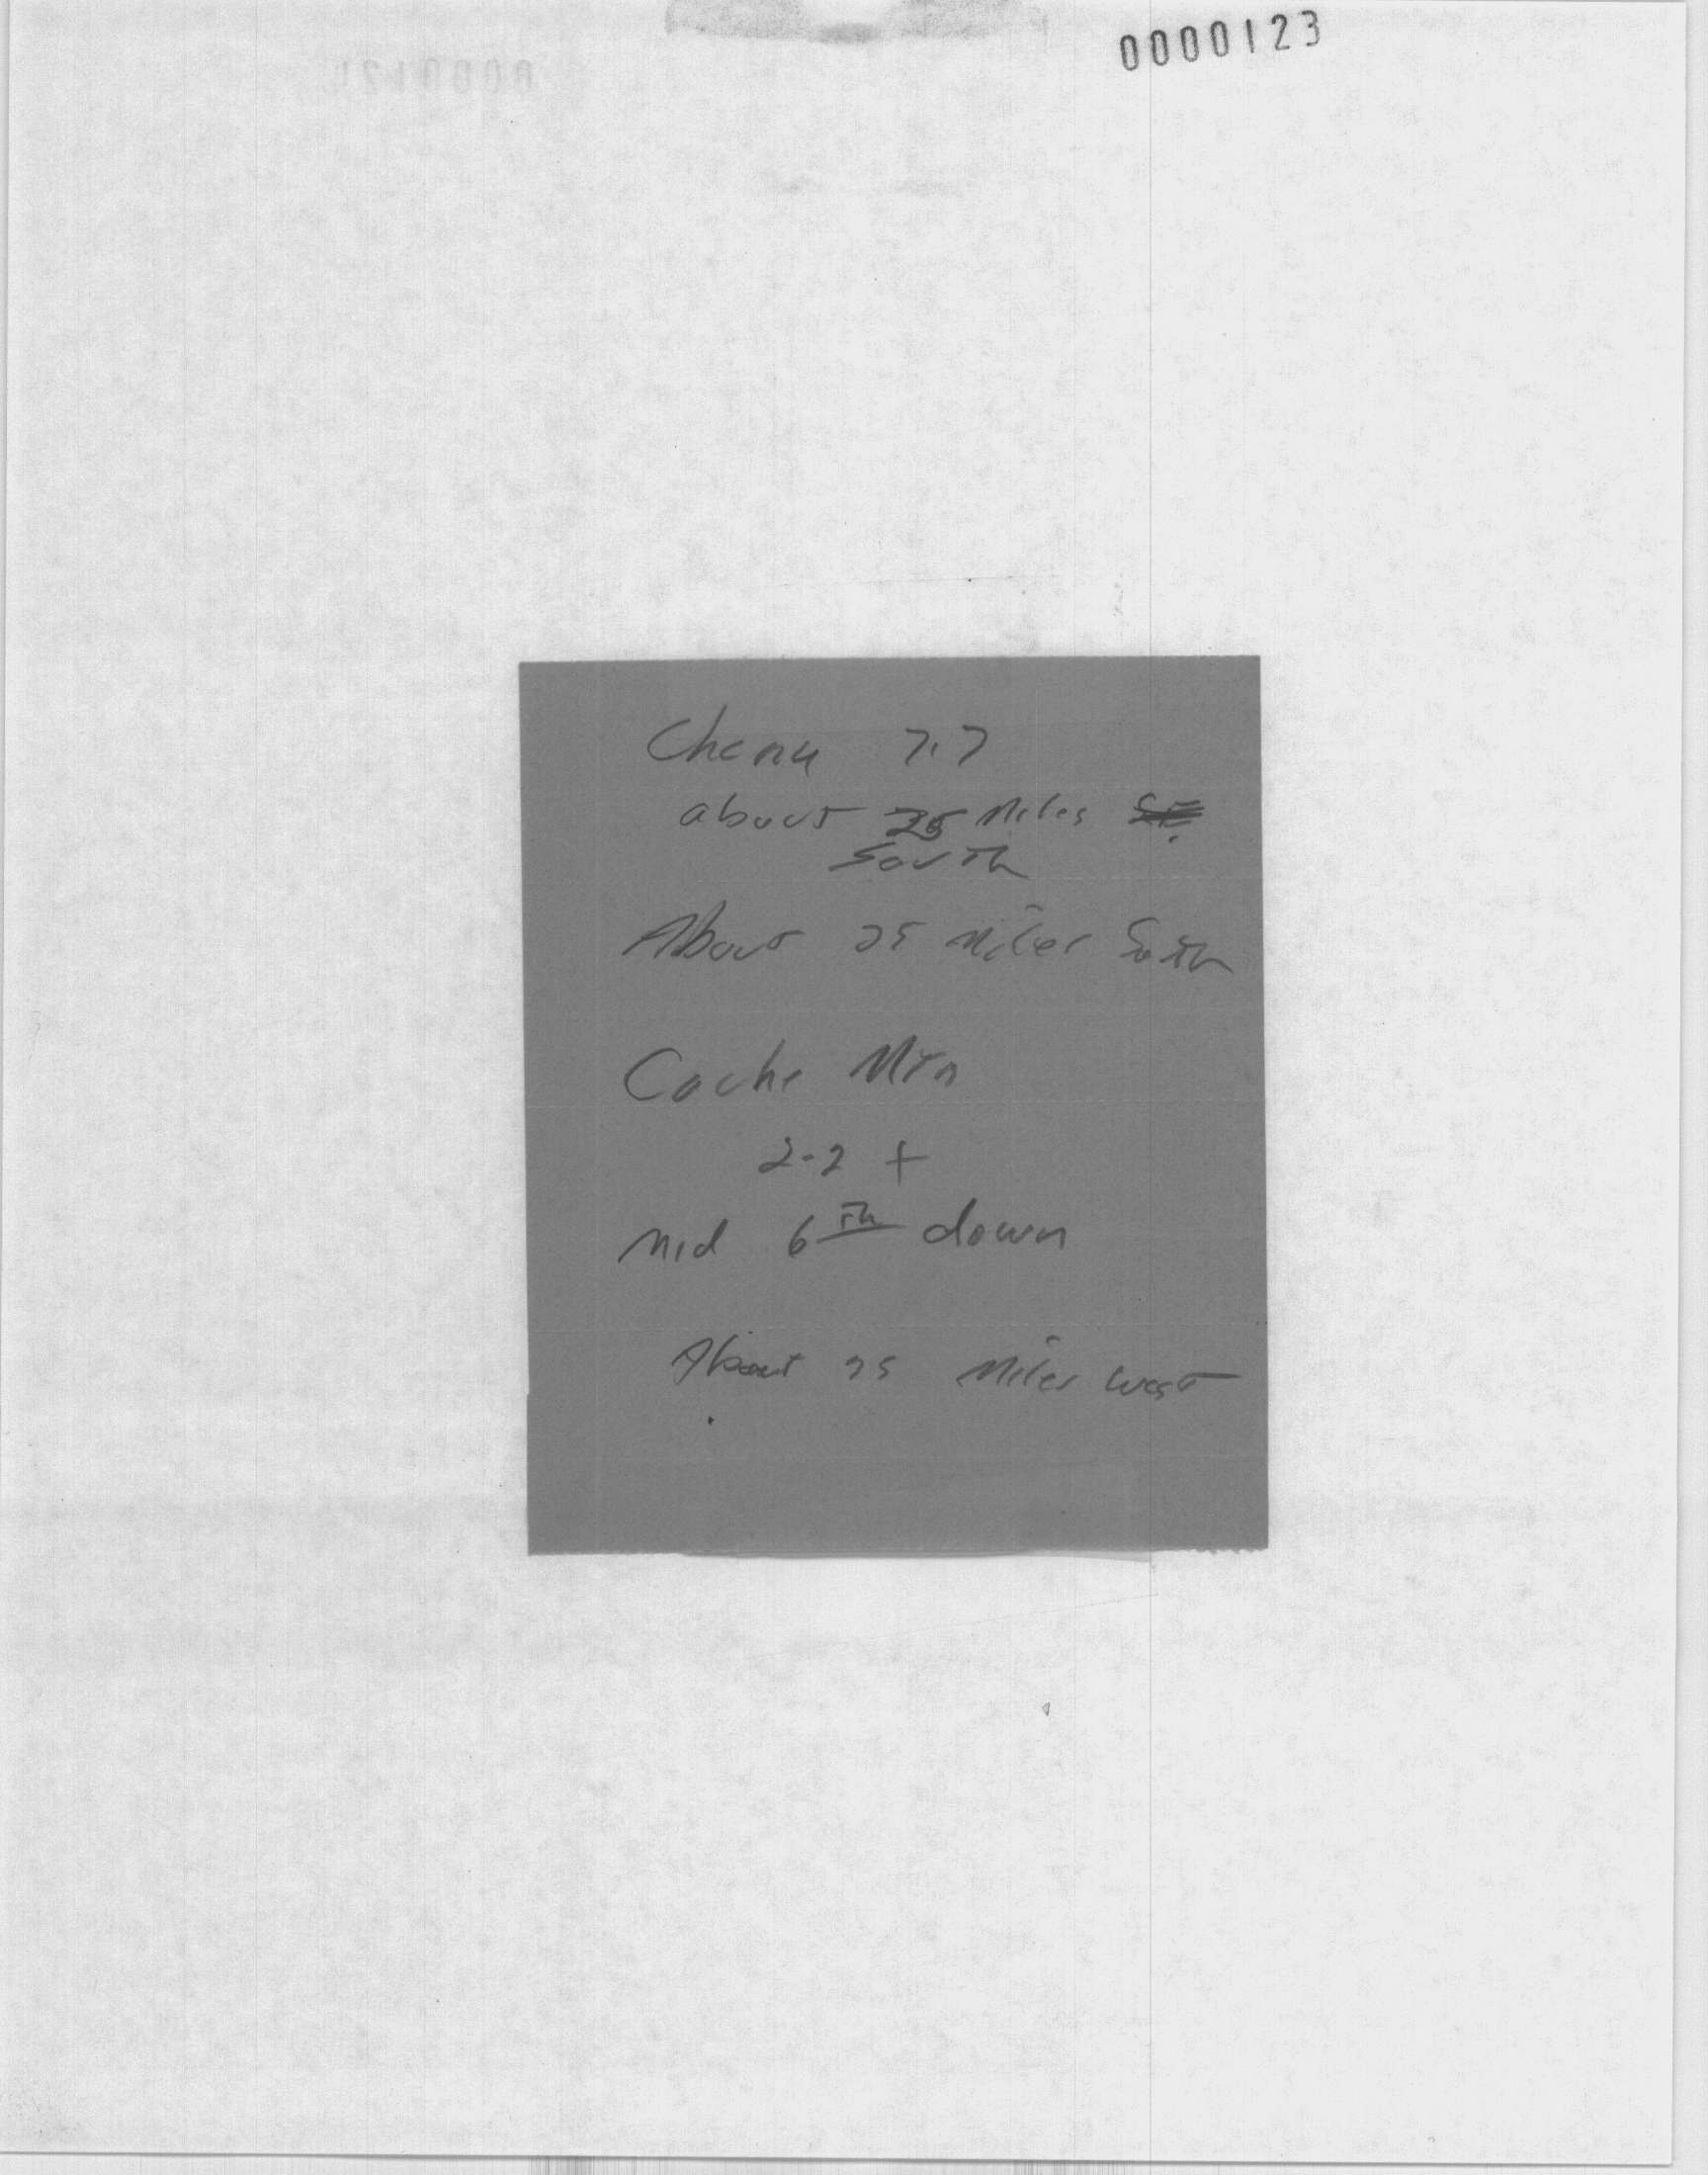 0000123
Chena 7.7
about 25 Miles
South
About 25 Miles South
Cache Mtn
2.2 +
Mid 6th down
About 25 Miles West